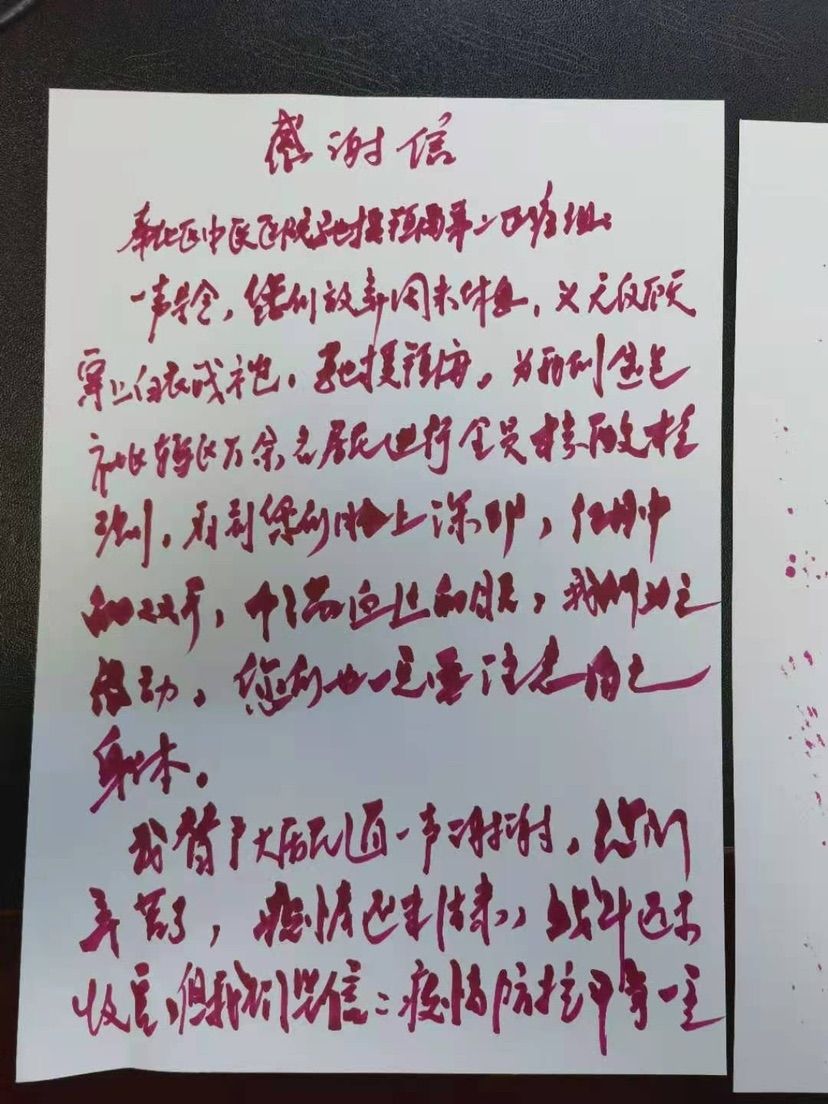 感谢信
奉化区中医医院驰援镇海第二医疗组：
一声号令，你们放弃周末休息，义无反顾
穿上白衣战袍，驰援镇海，为我们
社区辖区万余名居民进行全员核酸检
测，看到你们脸上深印，
的双手，我们为之
感动，您们也一定要注意自己
身体。
我替广大居民道一声谢谢，你们
辛苦了，疫情还未结束，战斗还未
收官，但我们坚信：疫情防控